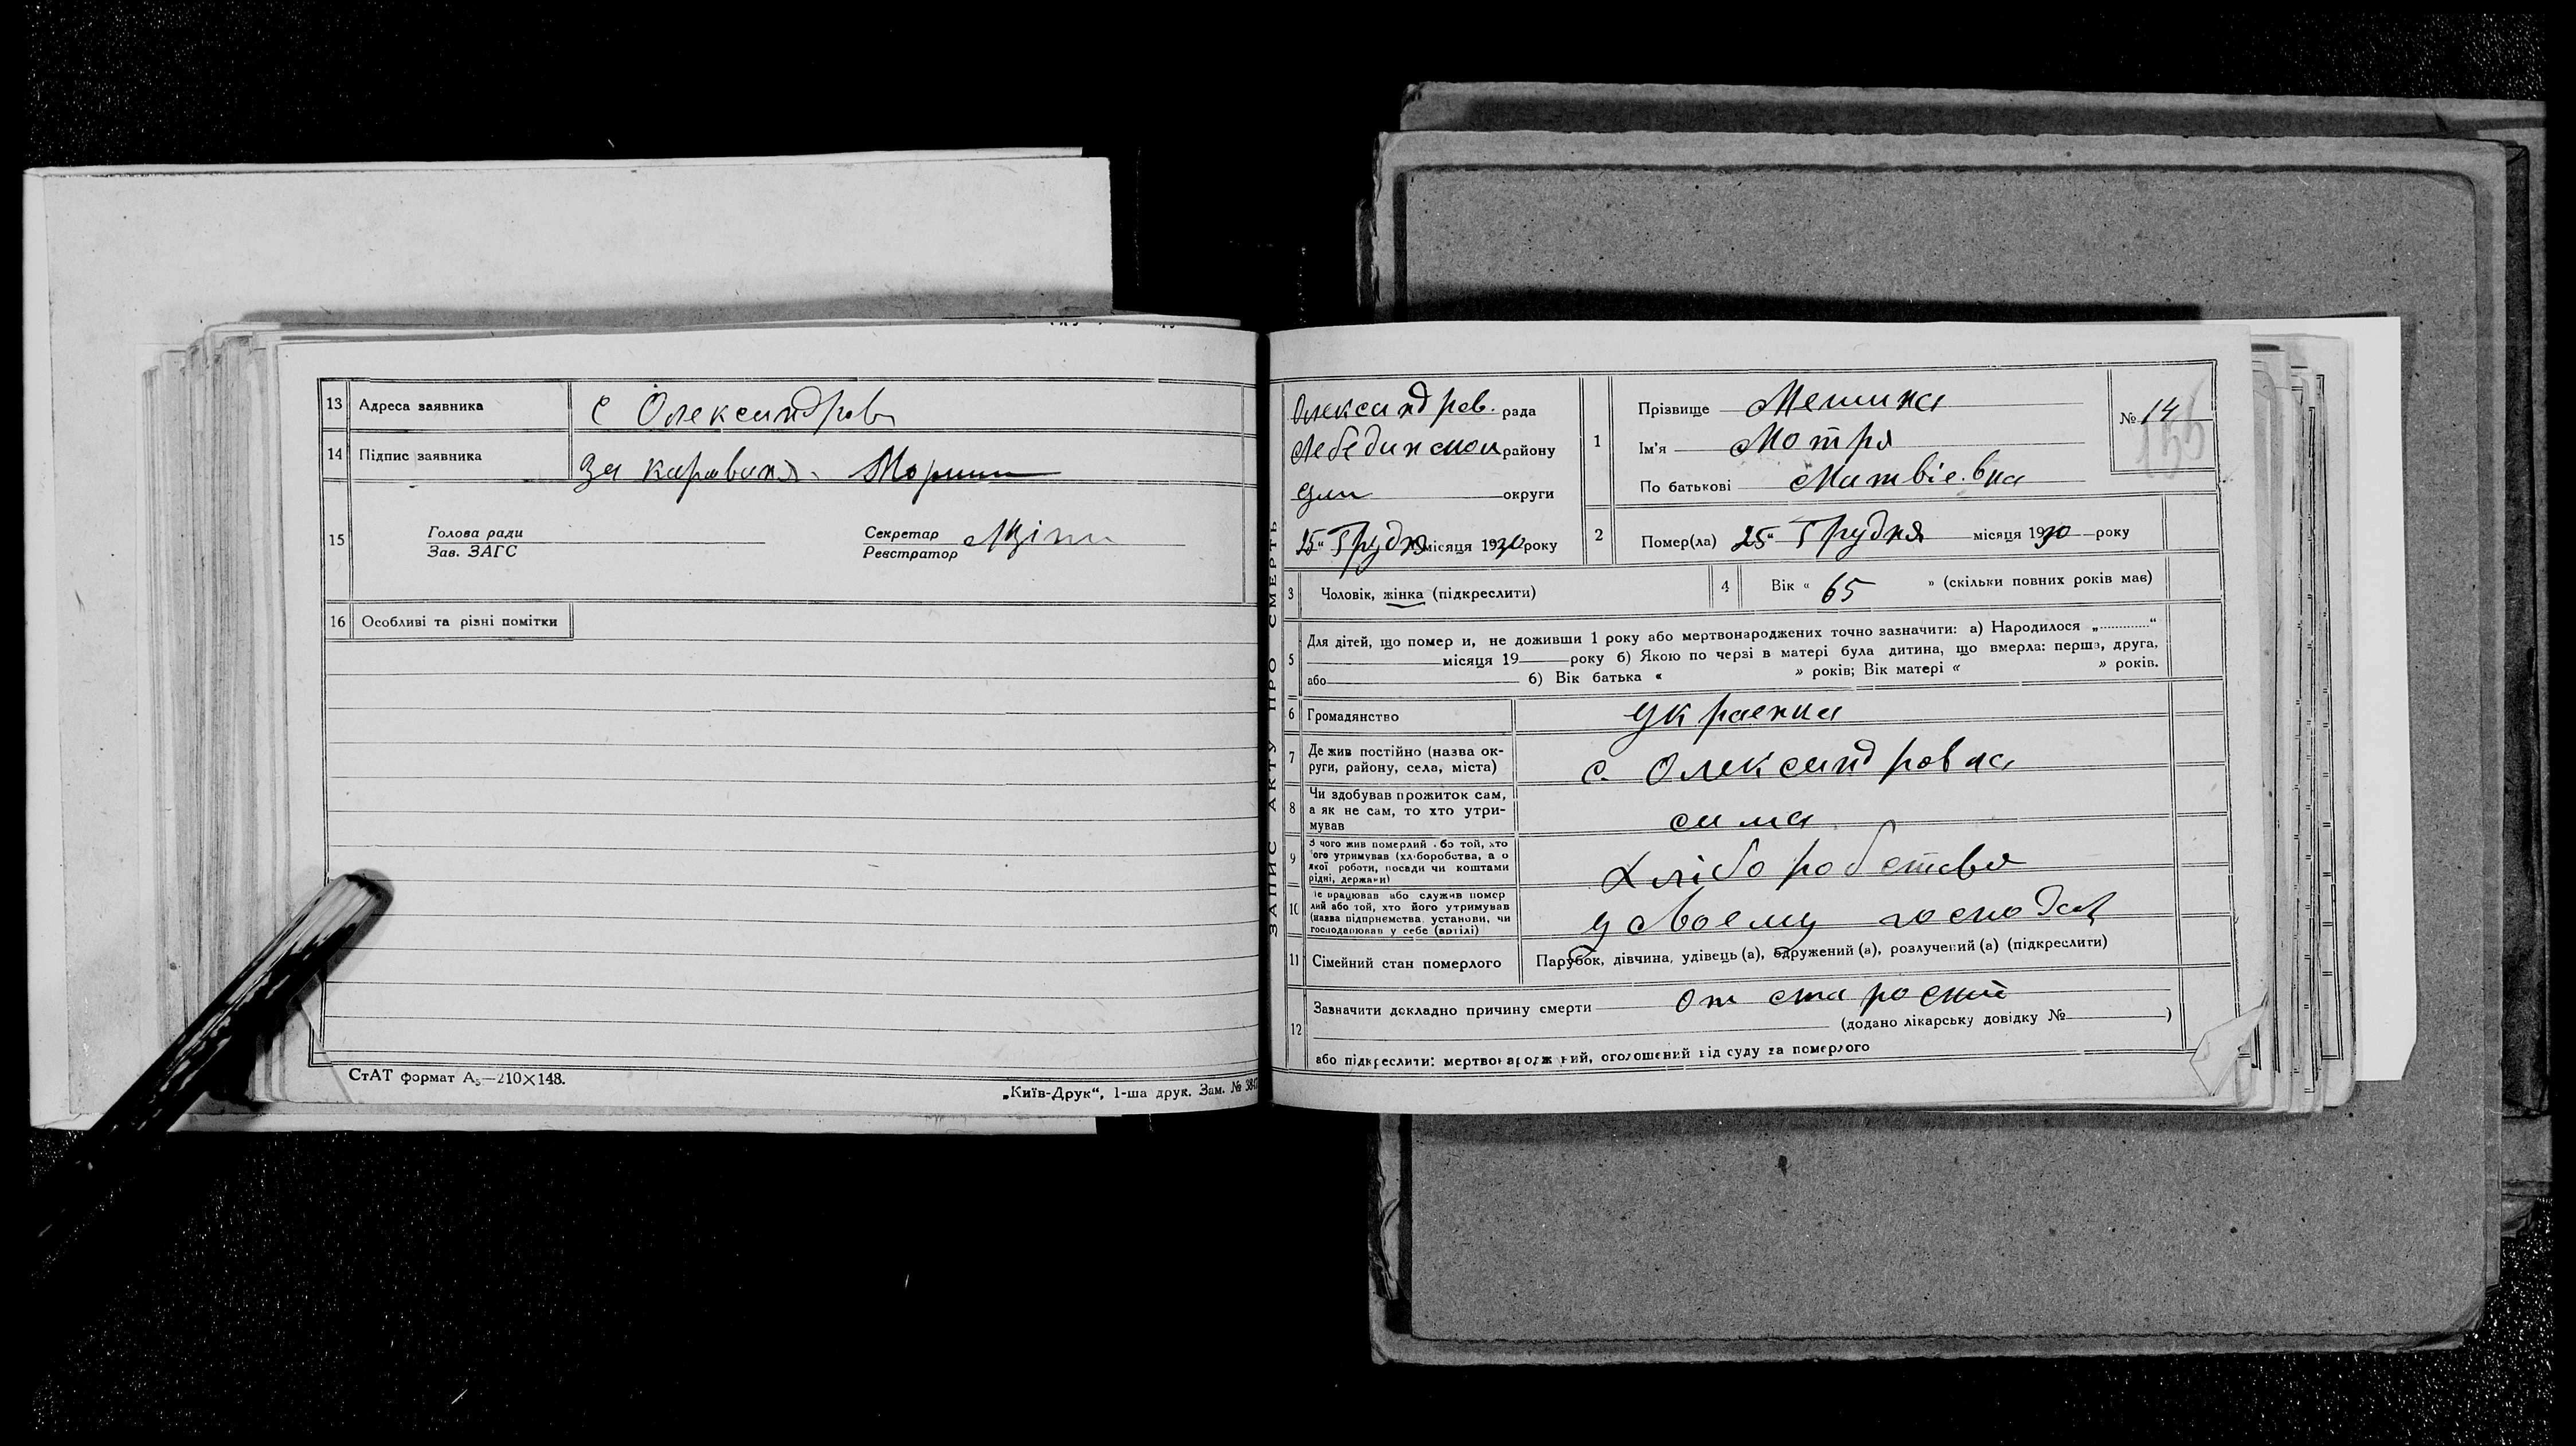 13 Адреса заявника С Олександров
14 Підпис заявника За
15 Голова ради
Зав. ЗАГС
Секретар
Реєстратор
16 Особливі та різні помітки
СтАТ формат А₅—210×148.
„Київ-Друк“, 1-ша друк. Зам. №
ЗАПИС АКТУ ПРО СМЕРТЬ
Олександров. рада
району
округи
25 Грудня місяця 1930 року
1 Прізвище
Ім'я Мотря
По батькові Матвіевна
№ 14
2 Помер(ла) 25 Грудня місяця 1930 року
3 Чоловік, жінка (підкреслити)
4 Вік « 65 » (скільки повних років має)
5 Для дітей, що помер и, не доживши 1 року або мертвонароджених точно зазначити: а) Народилося „............“
місяця 19 року б) Якою по черзі в матері була дитина, що вмерла: перша, друга,
або б) Вік батька « » років; Вік матері « » років.
6 Громадянство Украенка
7 Де жив постійно (назва ок-
руги, району, села, міста) с. Олександровка
8 Чи здобував прожиток сам,
а як не сам, то хто утри-
мував сама
9 З чого жив померлий або той, хто
його утримував (хліборобства, а о
якої роботи, посади чи коштами
рідні, держави) Хліборобство
10 Де працював або служив помер
лий або той, хто його утримував
(назва підприємства, установи, чи
господарював у себе (артілі) у своему господ
11 Сімейний стан померлого Парубок, дівчина, удівець (а), одружений (а), розлучений (а) (підкреслити)
12 Зазначити докладно причину смерти От старости
(додано лікарську довідку № )
або підкреслити: мертвонароджений, оголошений від суду за померлого